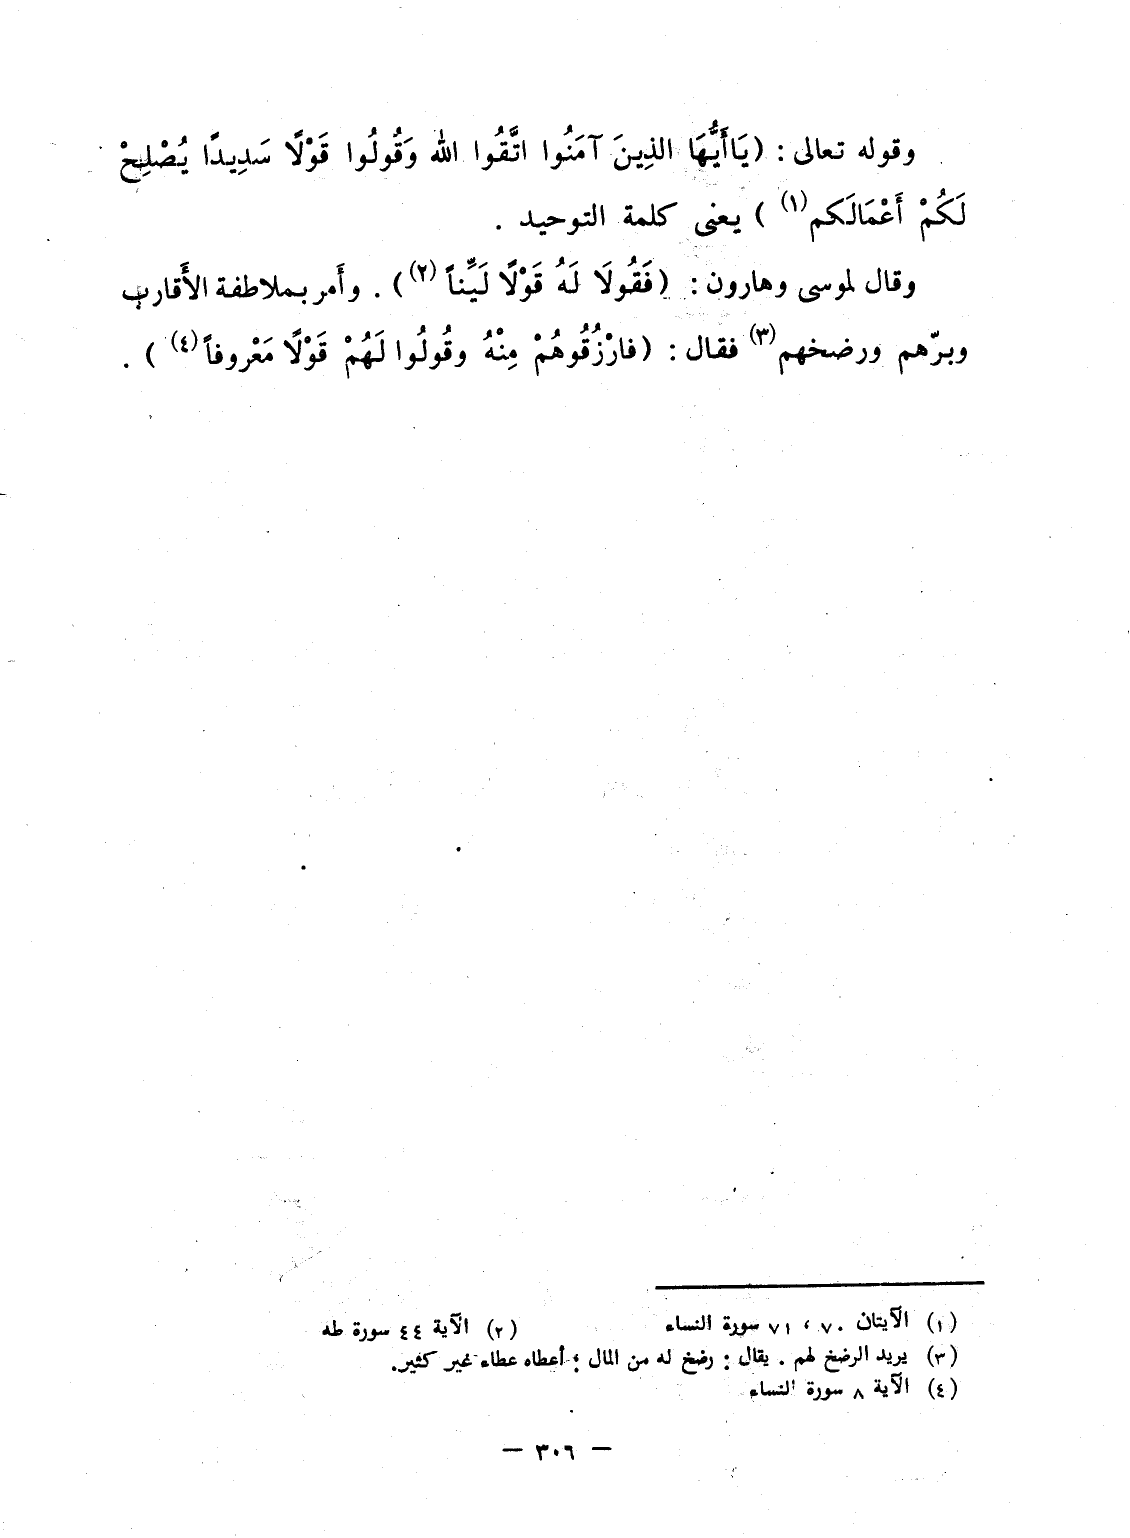 وقوله تعالى : ( يَاأَيُّهَا الذِينَ آمَنُوا اتَّقُوا الله وَقُولُوا قَوْلًا سَدِيدًا يُصْلِحْ
لَكُمْ أَعْمَالَكم(١) ) يعنى كلمة التوحيد .
وقال لموسى وهارون : ( فَقُولَا لَهُ قَوْلًا لَيِّناً(٢) ) . وأَمر بملاطفة الأَقارب
وبرّهم ورضخهم(٣) فقال : ( فارْزُقُوهُمْ مِنْهُ وقُولُوا لَهُمْ قَوْلًا مَعْروفاً(٤) ) .
(١) الآيتان ٧٠ ، ٧١ سورة النساء (٢) الآية ٤٤ سورة طه
(٣) يريد الرضخ لهم . يقال : رضخ له من المال : أعطاه عطاء غير كثير.
(٤) الآية ٨ سورة النساء
— ٣٠٦ —